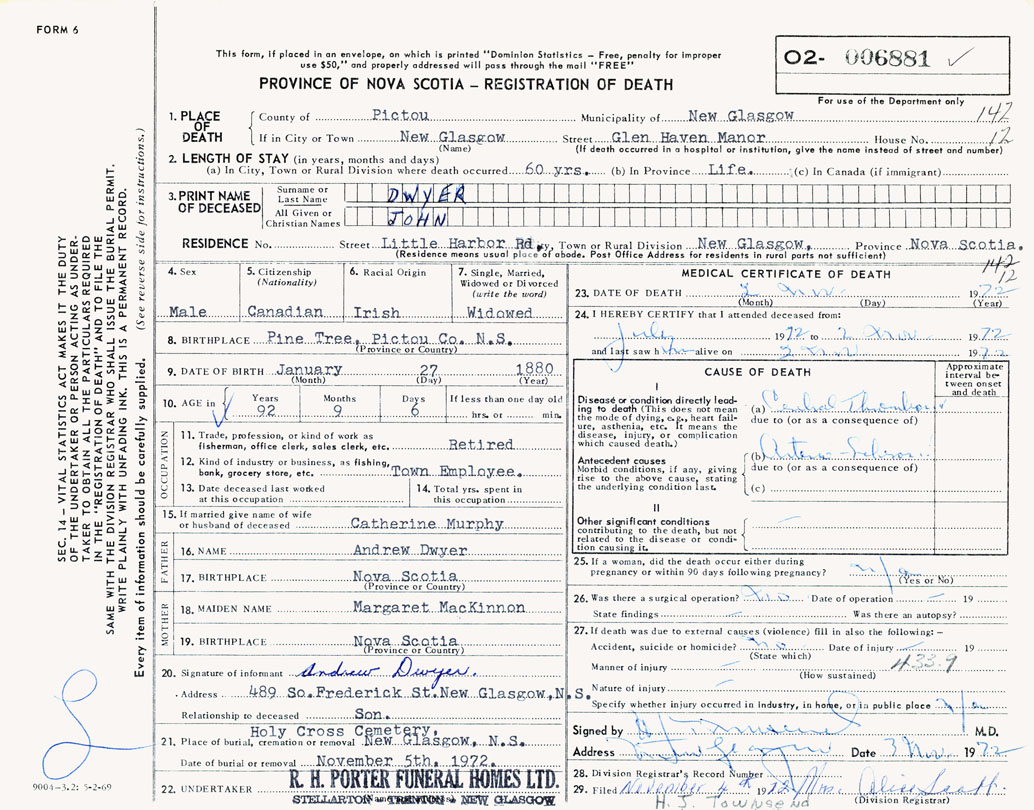 FORM 6
This form, if placed in an envelope, on which is printed "Dominion Statistics – Free, penalty for improper
use $50," and properly addressed will pass through the mail "FREE"
O2- 006881 ✓
For use of the Department only
PROVINCE OF NOVA SCOTIA – REGISTRATION OF DEATH
142
12
1. PLACE OF DEATH County of Pictou Municipality of New Glasgow
If in City or Town New Glasgow Street Glen Haven Manor House No.
(Name) (If death occurred in a hospital or institution, give the name instead of street and number)
2. LENGTH OF STAY (in years, months and days)
(a) In City, Town or Rural Division where death occurred 60 yrs. (b) In Province Life. (c) In Canada (if immigrant)
3. PRINT NAME OF DECEASED
Surname or Last Name DWYER
All Given or Christian Names JOHN
RESIDENCE No. Street Little Harbor Rd. y, Town or Rural Division New Glasgow, Province Nova Scotia.
(Residence means usual place of abode. Post Office Address for residents in rural parts not sufficient)
142
12
4. Sex
Male
5. Citizenship (Nationality)
Canadian
6. Racial Origin
Irish
7. Single, Married, Widowed or Divorced (write the word)
Widowed
8. BIRTHPLACE Pine Tree, Pictou Co. N.S.
(Province or Country)
9. DATE OF BIRTH January 27 1880
(Month) (Day) (Year)
10. AGE in Years Months Days If less than one day old
92 9 6 hrs. or min.
OCCUPATION
11. Trade, profession, or kind of work as
fisherman, office clerk, sales clerk, etc. Retired
12. Kind of industry or business, as fishing,
bank, grocery store, etc. Town Employee.
13. Date deceased last worked at this occupation
14. Total yrs. spent in this occupation
15. If married give name of wife
or husband of deceased Catherine Murphy
FATHER
16. NAME Andrew Dwyer
17. BIRTHPLACE Nova Scotia
(Province or Country)
MOTHER
18. MAIDEN NAME Margaret MacKinnon
19. BIRTHPLACE Nova Scotia
(Province or Country)
20. Signature of informant Andrew Dwyer.
Address 489 So.Frederick St.New Glasgow,N.S.
Relationship to deceased Son.
Holy Cross Cemetery,
21. Place of burial, cremation or removal New Glasgow, N.S.
Date of burial or removal November 5th, 1972.
22. UNDERTAKER R. H. PORTER FUNERAL HOMES LTD.
STELLARTON and TRENTON & NEW GLASGOW
MEDICAL CERTIFICATE OF DEATH
23. DATE OF DEATH 2 Nov 1972
(Month) (Day) (Year)
24. I HEREBY CERTIFY that I attended deceased from:
July 1972 to 2 Nov 1972
and last saw him alive on 2 Nov 1972
CAUSE OF DEATH
Approximate interval between onset and death
I
Disease or condition directly leading to death (This does not mean the mode of dying, e.g., heart failure, asthenia, etc. It means the disease, injury, or complication which caused death.)
(a) Cerebral Thrombosis
due to (or as a consequence of)
Antecedent causes
Morbid conditions, if any, giving rise to the above cause, stating the underlying condition last.
(b)
due to (or as a consequence of)
(c)
II
Other significant conditions contributing to the death, but not related to the disease or condition causing it.
25. If a woman, did the death occur either during
pregnancy or within 90 days following pregnancy? n/a
(Yes or No)
26. Was there a surgical operation? no Date of operation 19
State findings Was there an autopsy?
27. If death was due to external causes (violence) fill in also the following: –
Accident, suicide or homicide? no Date of injury 19
(State which)
433.9
Manner of injury
(How sustained)
Nature of injury
Specify whether injury occurred in industry, in home, or in public place n/a
Signed by M.D.
Address New Glasgow Date 3 Nov. 1972
28. Division Registrar's Record Number
29. Filed November 4th 1972 Mrs. Alice Scott
(Division Registrar)
H. J. Townsend
SEC. 14 – VITAL STATISTICS ACT MAKES IT THE DUTY
OF THE UNDERTAKER OR PERSON ACTING AS UNDER-
TAKER TO OBTAIN ALL THE PARTICULARS REQUIRED
IN THE "REGISTRATION OF DEATH" AND TO FILE THE
SAME WITH THE DIVISION REGISTRAR WHO SHALL ISSUE THE BURIAL PERMIT.
WRITE PLAINLY WITH UNFADING INK. THIS IS A PERMANENT RECORD.
Every item of information should be carefully supplied. (See reverse side for instructions.)
9004-3.2: 5-2-69